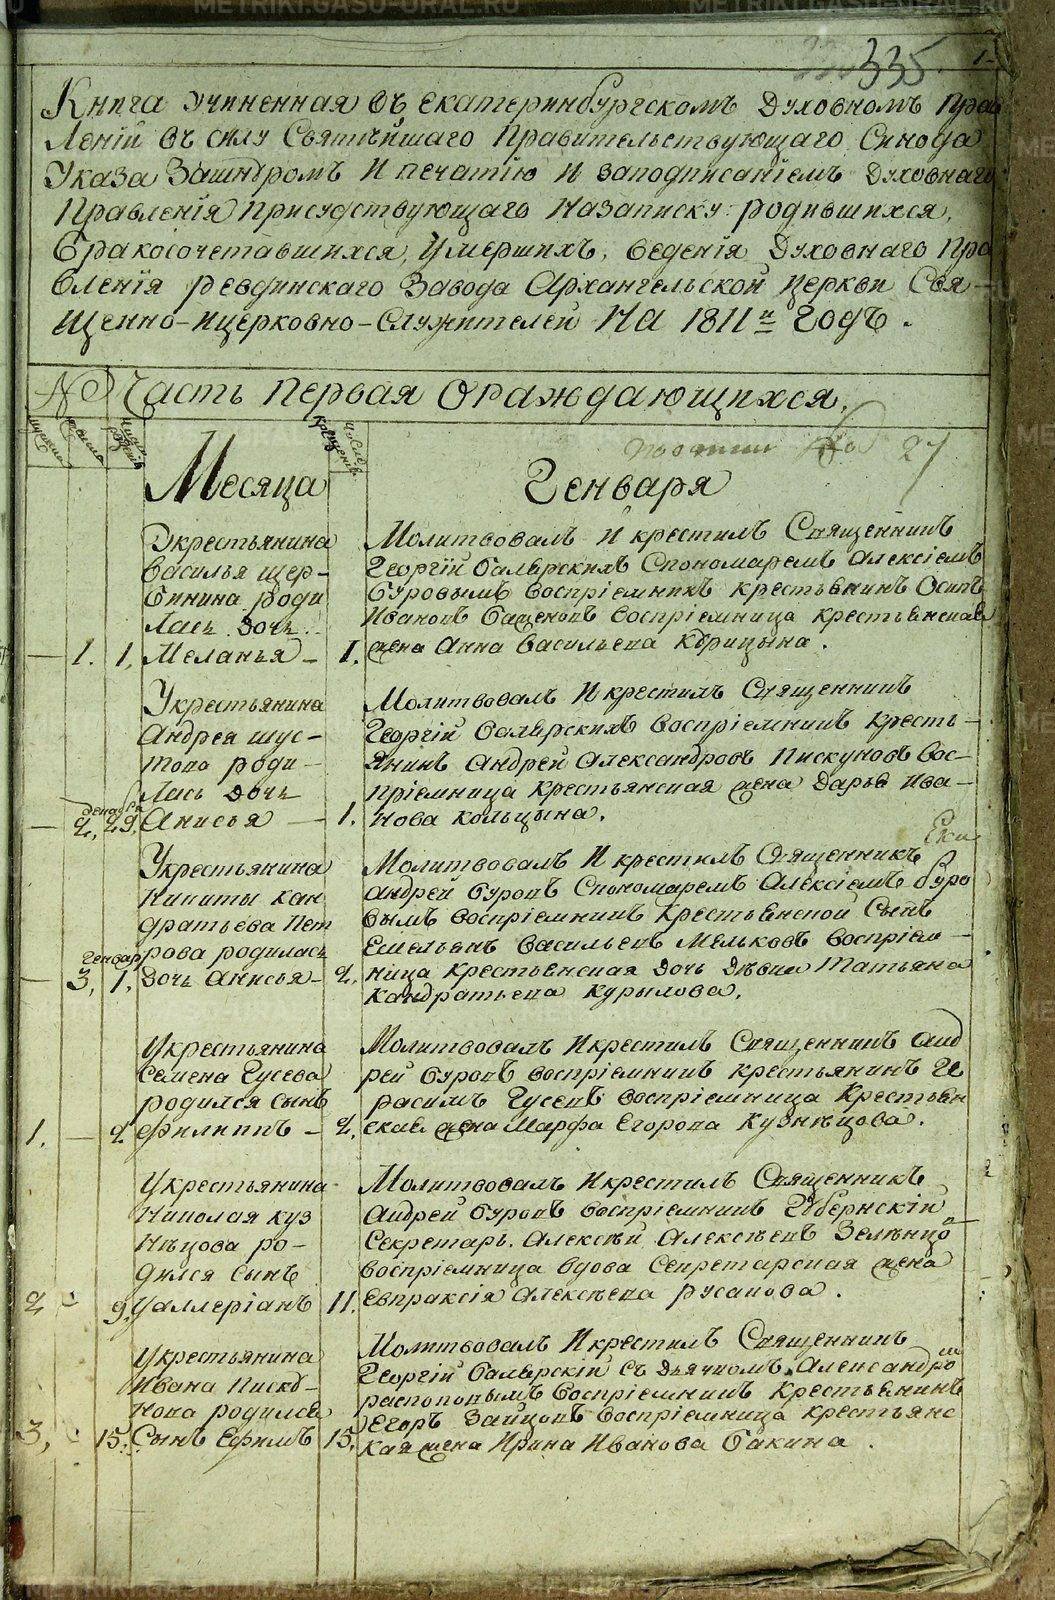 335.
1
Книга учиненная въ екатеринбургскомъ Духовномъ Пра
Леній въ силу Святѣйшаго Правительствующаго Синода
Указа Зашнуромъ И печатію И заподписаніемъ Духовнаго
Правленія Присудствующаго Назаписку родившихся,
бракосочетавшихся, Умершихъ, веденія Духовнаго Пра
вленія ревдинскаго Завода Архангельской Церкви Свя
щенно-ицерковно-служителей На 1811й Годъ.
№ Часть Первая Ораждающихся.
27
Месяца Генваря
Укрестьянина
Василья щер-
бинина роди
Лась Дочь
1. 1. Меланья – 1.
Молитвовалъ И крестилъ Священникъ
Георгій Спономаремъ Алексіемъ
буровымъ воспріемникъ крестьянинъ Осипъ
Ивановъ воспріемница крестьянская
жена Анна Васильева Корицына.
Укрестьянина
Андрея шус-
това роди-
Лась Дочь
декабря
2, 29. Анисья – 1.
Молитвовалъ И крестилъ Священникъ
Георгій воспріемникъ кресть-
янинъ Андрей Александровъ Пискуновъ вос-
пріемница Крестьянская жена Дарья Ива-
нова Кольцына.
Укрестьянина
Никиты кан
дратьева Пет
рова родилась
генвар
3, 1. Дочь Анисья – 2.
Молитвовалъ И крестилъ Священникъ
Андрей буровъ Спономаремъ Алексіемъ буро
вымъ воспріемникъ Крестьянской Сынъ
Емельянъ Васильевъ Мельковъ воспріем-
ница Крестьянская Дочь Дѣвка Татьяна
Кандратьева Курылова.
Укрестьянина
Семена Гусева
родился сынъ
1. – 2 Филиппъ – 2.
Молитвовалъ Икрестилъ Священникъ Анд
рей буровъ воспріемникъ крестьянинъ Ге
расимъ Гусевъ воспріемница Крестьян
ская жена Марфа Егорова Кузнѣцова.
Укрестьянина
Николая куз
нѣцова ро-
дился сынъ
2 9. Уаллеріанъ 11.
Молитвовалъ Икрестилъ Священникъ
Андрей буровъ воспріемникъ Губернскій
Секретарь Алексѣй Алексѣевъ Зелѣнцо
въ
воспріемница вдова Секретарская жена
Евпраксія Алексѣева русанова.
Укрестьянина
Ивана Писку-
нова родился
3, 15. Сынъ Ефимъ 15.
Молитвовалъ Икрестилъ Священникъ
Георгій Съ Дьячкомъ Александро
мъ
распоповымъ воспріемникъ крестьянинъ
Егоръ Зайцовъ воспріемница крестьянс
кая жена Ирина Иванова бакина.
METRIKI.GASO-URAL.RU